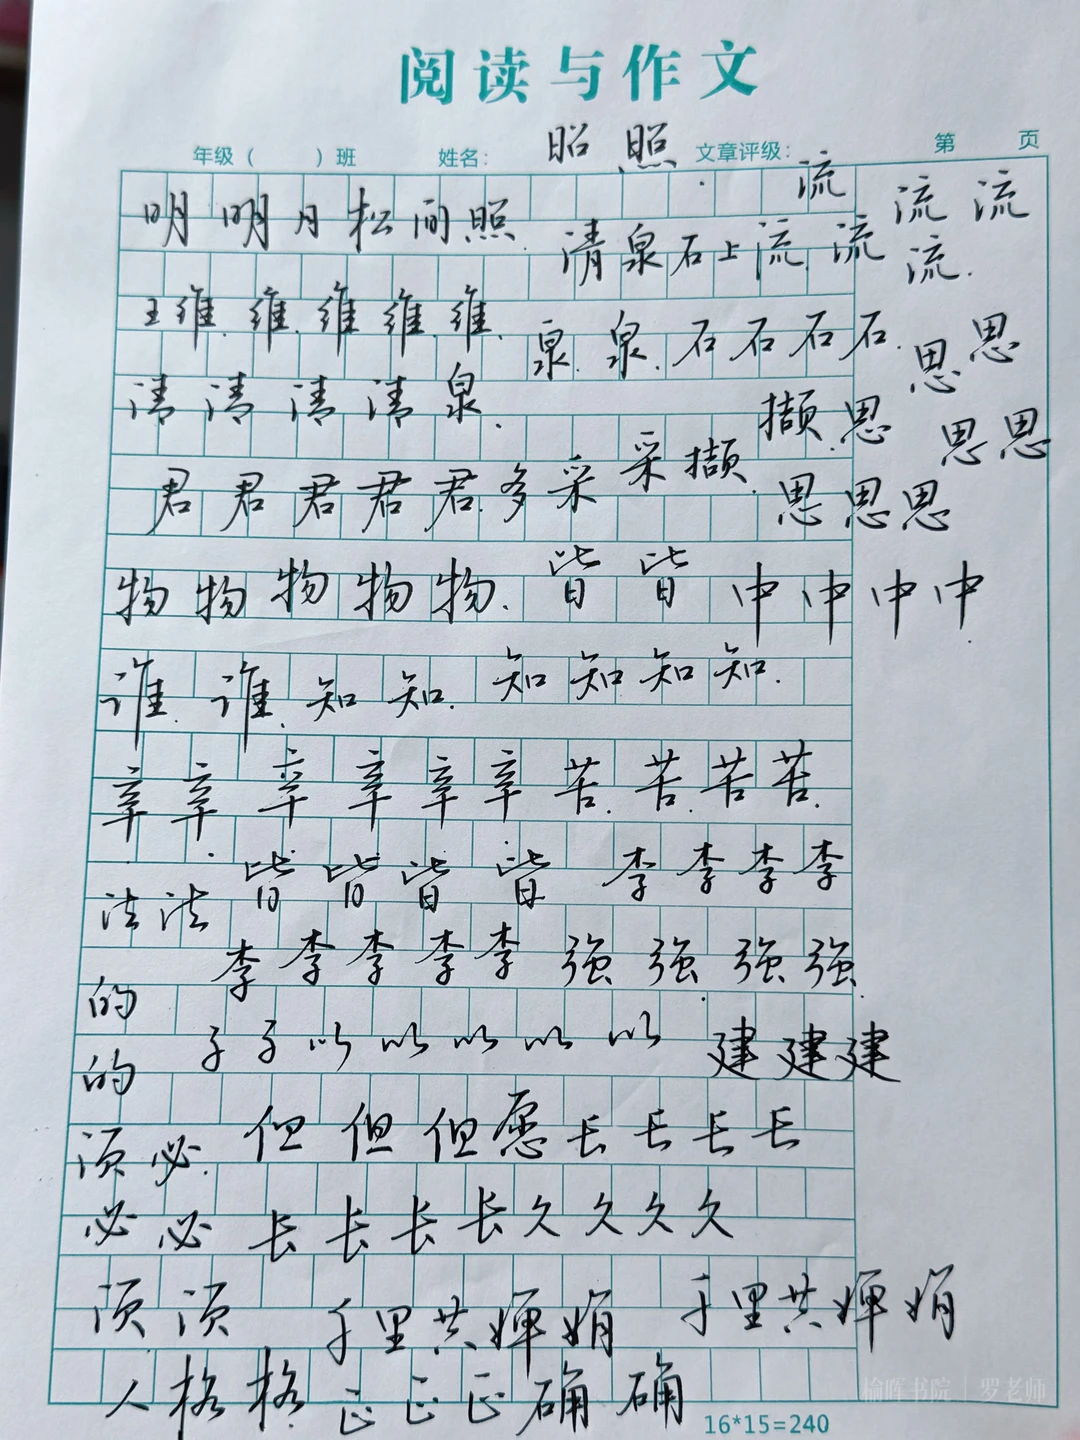 阅读与作文
昭 照
年级（ ）班 姓名： 文章评级： 第 页
明 明 月 松 间 照
流 流 流
清 泉 石 上 流 流 流
王 维 维 维 维 维
泉 泉 石 石 石 石 思 思
清 清 清 清 泉
撷 思 思 思
君 君 君 君 君 多 采 采 撷
思 思 思
物 物 物 物 物 皆 皆 中 中 中 中
谁 谁 知 知 知 知 知 知
辛 辛 辛 辛 辛 辛 苦 苦 苦 苦
皆 皆 皆 皆 李 李 李 李
法 法
李 李 李 李 李 强 强 强 强
的
子 子 以 以 以 以 以 建 建 建
的
但 但 但 愿 长 长 长 长
须 必
必 必 长 长 长 长 久 久 久 久
须 须 千 里 共 婵 娟 千 里 共 婵 娟
人 格 格 正 正 正 确 确
榆晖书院 | 罗老师
16*15=240